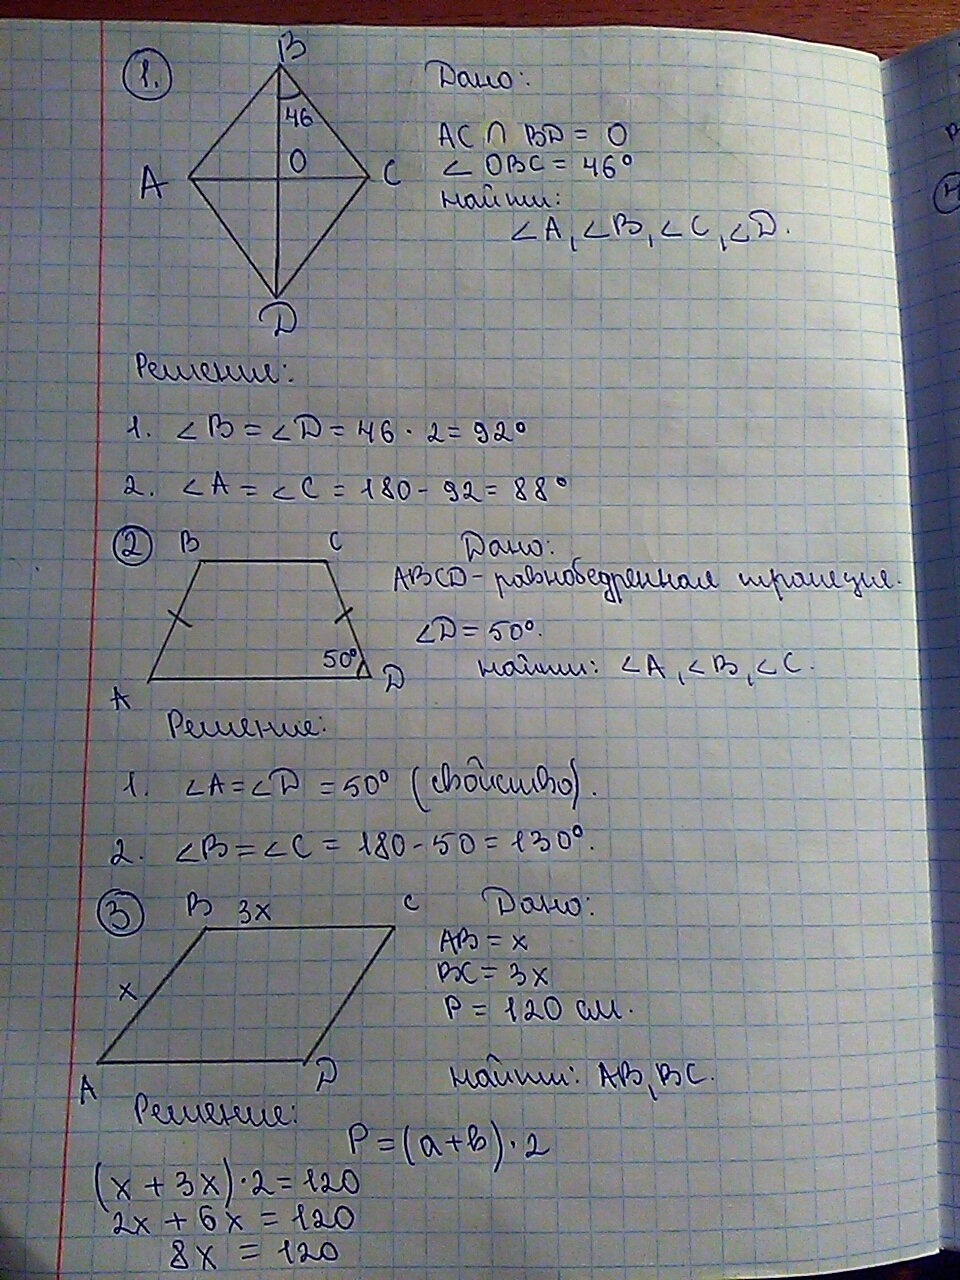 1.
B
46
O
A
C
D
Дано:
AC ∩ BD = O
∠ OBC = 46°
Найти:
∠A, ∠B, ∠C, ∠D.
Решение:
1. ∠B = ∠D = 46 · 2 = 92°
2. ∠A = ∠C = 180 - 92 = 88°
2
B
C
50°
A
D
Дано:
ABCD - равнобедренная трапеция.
∠D = 50°.
Найти: ∠A, ∠B, ∠C.
Решение:
1. ∠A = ∠D = 50° (свойство).
2. ∠B = ∠C = 180 - 50 = 130°.
3
B 3x
C
x
A
D
Дано:
AB = x
BC = 3x
P = 120 см.
Найти: AB, BC.
Решение:
P = (a + b) · 2
(x + 3x) · 2 = 120
2x + 6x = 120
8x = 120